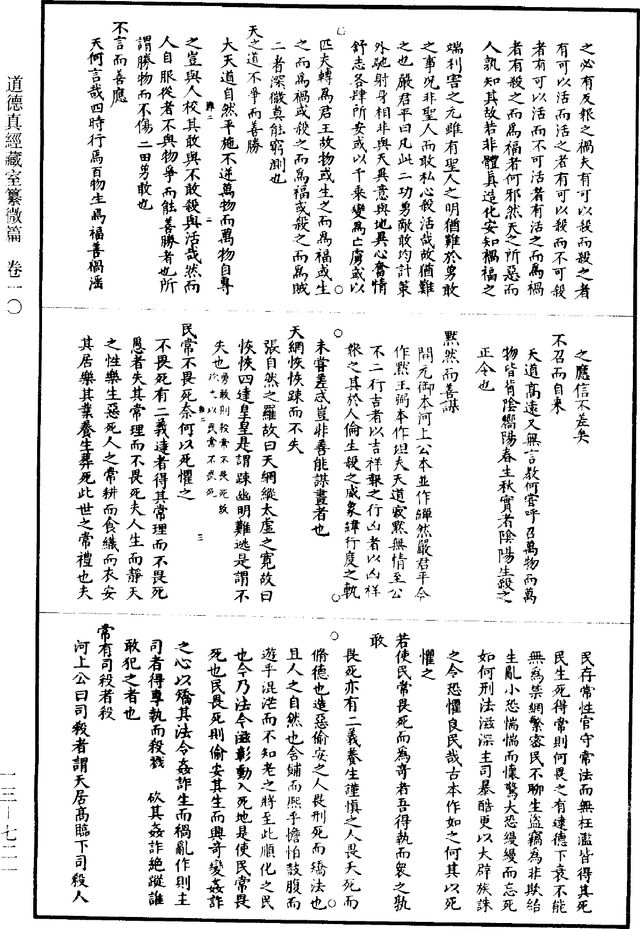 之必有反報之禍夫有可以殺而殺之者
有可以活而活之者有可以殺而不可殺
者有可以活而不可活者有活之而爲禍
者有殺之而爲福者何邪然天之所惡而
人孰知其故若非體真造化安知禍福之
端利害之元雖有聖人之明猶難於勇敢
之事況非聖人而敢私心殺活哉故猶難
之也嚴君平曰凡此二功勇敢敢均計策
外馳射身相非與天異意與地異心奮情
舒志各肆所安或以千乘變爲亡虜或以
匹夫轉爲君王故物或生之而爲福或生
之而爲禍或殺之而爲福或殺之而爲賊
二者深微莫能窮測也
天之道不爭而善勝
大天道自然平施不逆萬物而萬物自尊
之豈與人校其敢與不敢殺與活哉然而
人自服從者不與物爭而能善勝者也所
謂勝物而不傷二田勇敢也
不言而善應
天何言哉四時行焉百物生焉福善禍淫
道德真經藏室纂微篇　卷一〇
之應信不差矣
不召而自來
天道高遠又無言教何嘗呼召萬物而萬
物皆背陰嚮陽春生秋實者陰陽生殺之
正令也
默然而善謀
開元御本河上公本並作繟然嚴君平今
作默王弼本作坦夫天道寂默無情至公
不二行吉者以吉祥報之行凶者以凶祥
報之其於人倫生殺之威象緯行度之軌
未嘗差忒豈非善能謀畫者也
天網恢恢踈而不失
張自然之羅故曰天網縱太虛之寛故曰
恢恢四達皇皇是謂踈幽明難逃是謂不
失也勇敢則殺常不畏死故
次之以民常不畏死
民常不畏死奈何以死懼之
不畏死有二義達者得其常理而不畏死
愚者失其常理而不畏死夫人生而靜天
之性樂生惡死人之常耕而食織而衣安
其居樂其業養生葬死此世之常禮也夫
民存常性官守常法而無枉濫皆得其死
民生死得常則何畏之有逮德下衰不能
無爲禁網繁密民不聊生盜竊爲非欺紿
生亂小恐惴惴而懷驚大恐縵縵而忘死
如何刑法滋深主司暴酷更以大辟族誅
之令恐懼良民哉古本作如之何其以死
懼之
若使民常畏死而爲奇者吾得執而衆之孰
敢
畏死亦有二義養生謹慎之人畏天死而
脩德也造惡偷安之人畏刑死而矯法也
且人之自然也含鋪而熙乎憺怕鼓腹而
遊乎混茫而不知老之將至此順化之民
也今乃法令滋彰動入死地是使民常畏
死也民畏死則偷安其生而興奇變姦詐
之心以矯其法令姦詐生而禍亂作則主
司者得專執而殺戮　砍其姦詐絶蹤誰
敢犯之者也
常有司殺者殺
河上公曰司殺者謂天居高臨下司殺人
一三－七二一